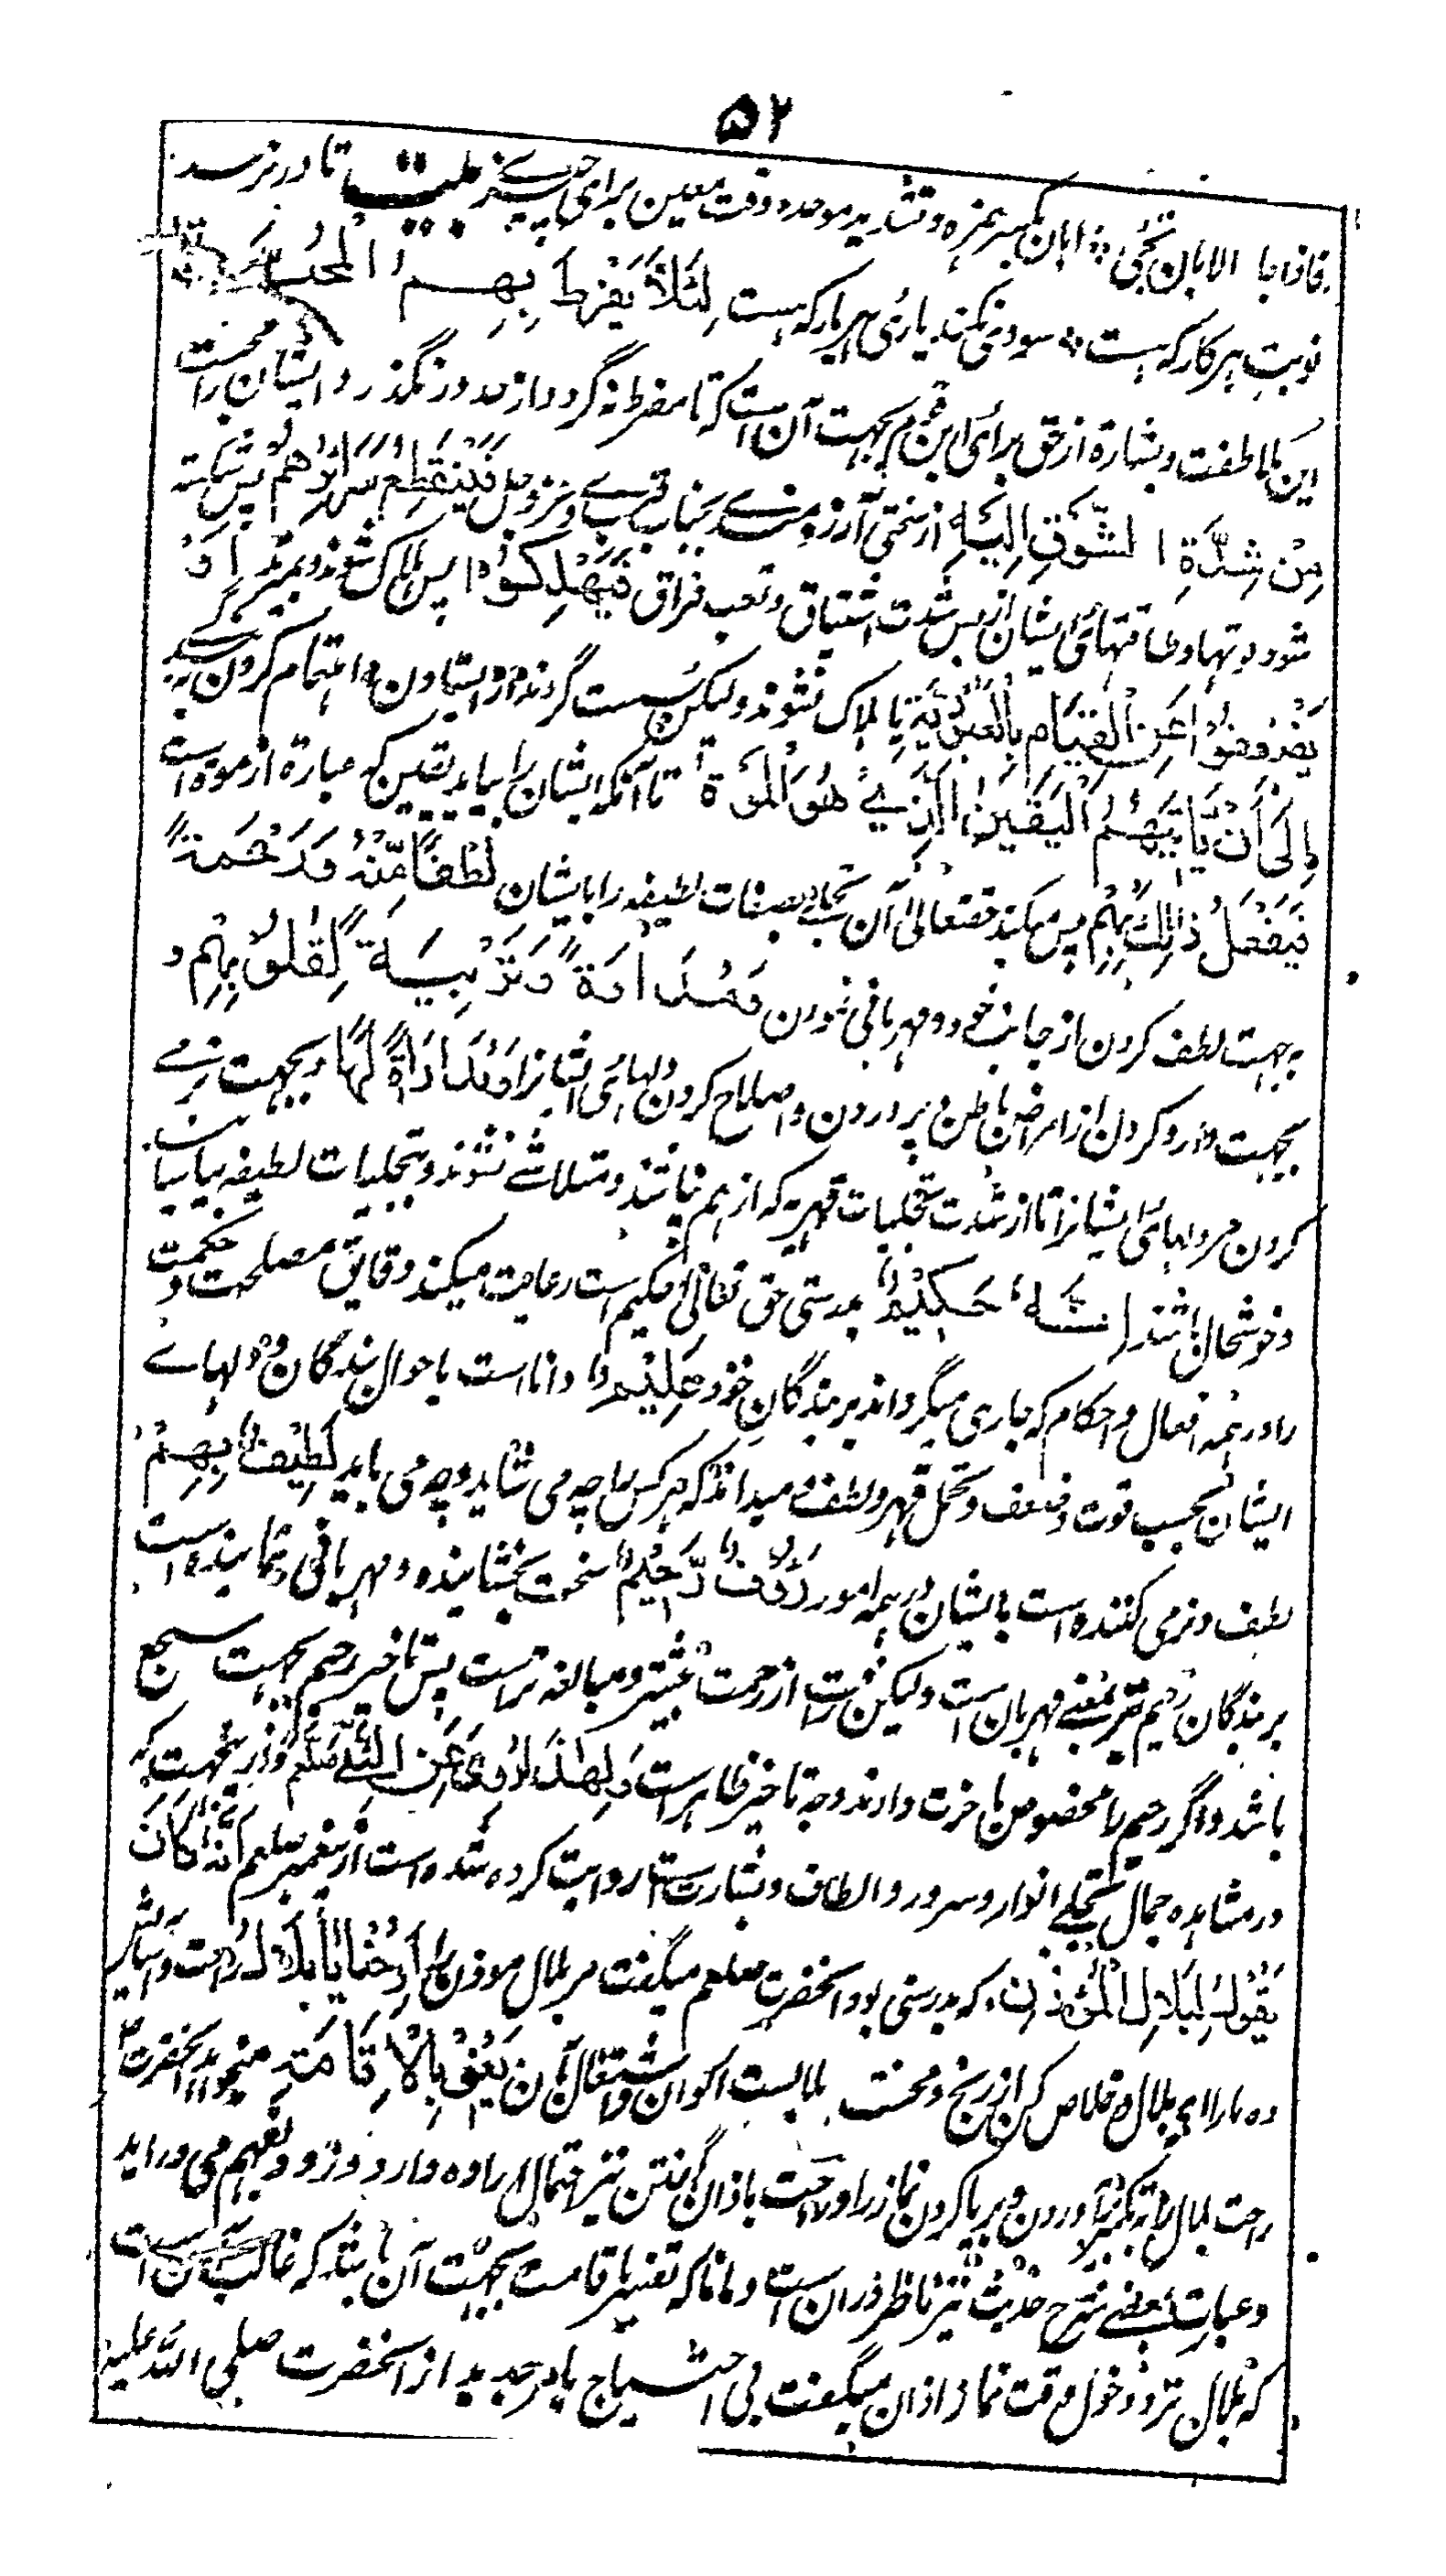 ۵۲
فاذا جا الابان تجئ ؛ ابان بکسر همزه و تشدید موحده وقت معین برای چیزے بیت تا در نرسد
نوبت هر کار که هست ؛ سودی نکند یاری هر یار که هست لِئَلَّا يَفْرُطَ بِهِمُ الْحُبُّ
این ملاطفت و بشارة از حق برای این قوم بجهت آن است که تا مفرط نه گردد از حد در نگذرد ایشان را محبت
مِنْ شِدَّةِ الشَّوْقِ اِلَيْهِ از سختی آرزومندے بجناب قرب وے عزوجل فَيَنْقَطِعُ مَرَائِرُهُمْ پس شکسته
شود و تها و طاقتهای ایشان از بس شدت اشتیاق و تعب فراق فَيَهْلِكُوْا پس هلاک شوند و بمیرند اَوْ
يَضْعُفُوْا عَنِ الْقِيَامِ بِالْعُبُوْدِيَّةِ یا هلاک نشوند ولیکن سست گردند از ایستادن و اهتمام کردن به بندگے
اِلٰى اَنْ يَّاْتِيَهُمُ الْيَقِيْنُ الَّذِيْ هُوَ الْمَوْتُ تا آنکه ایشان را بیاید یقین که عبارة از موت است
فَيَفْعَلُ ذٰلِكَ بِهِمْ پس میکند حقتعالی آن تجلے بصفات لطیفه را بایشان لُطْفًا مِّنْهُ وَرَحْمَةً
به جهت لطف کردن از جانب خود و مهربانی نمودن وَمُدَاوَةً وَتَرْبِيَةً لِقُلُوْبِهِمْ و
بجهت دارو کردن از امراض باطن و پروردن و اصلاح کردن دلهای ایشانرا وَمُدَارَاةً لَّهَا و بجهت نرمے
کردن مر دلهای ایشانرا تا از شدت تجلیات قهریه که از هم نپاشند و متلاشے نشوند و بتجلیات لطیفه بیاسایند
و خوشحال باشند اِنَّهُ حَكِيْمٌ بدرستی حق تعالی حکیم است رعایت میکند دقایق مصلحت و حکمت
را در همه افعال و احکام که جاری میگرداند بر بندگان خود عَلِيْمٌ دانا است باحوال بندگان و دلهاے
ایشان بحسب قوت و ضعف و تحمل قهر و لطف و میداند که هر کس را چه می شاید و چه می باید لَطِيْفٌ بِهِمْ
لطف و نرمی کننده است بایشان در همه امور رَؤُفٌ رَّحِيْمٌ سخت بخشاینده و مهربانی نماینده است
بر بندگان رحیم بمعنے مهربان است ولیکن رافت از رحمت بیشتر و مبالغه تر است پس تاخیر رحیم بجهت سجع
باشد و اگر رحیم را مخصوص باخرت دارند وجه تاخیر ظاهر است وَلِهٰذَا رُوِيَ عَنِ النَّبِيِّ صلعم و ازینجهت که
در مشاهده جمال تجلے انوار و سرور و الطاف و بشارت است روایت کرده شده است از پیغمبر صلعم اَنَّهُ كَانَ
يَقُوْلُ لِبِلَالِ الْمُؤَذِّنِ که بدرستی بود آنحضرت صلعم میگفت مر بلال موذن را اَرِحْنَا يَا بِلَالُ راحت و آسایش
ده مارا ای بلال و خلاص کن از رنج و محنت ملابست اکوان و اشتغال بآن يَعْنِيْ بِالْاِقَامَةِ میخواهد آنحضرت
راحت بلال را به تکبیر آوردن و برپا کردن نماز را و راحت باذان گفتن نیز احتمال اراده دارد و زود بفهم می دراید
و عبارت بعضے شرح حدیث نیز ناظر دران است و مانا که تفسیر باقامت بجهت آن باشد که غالب آن است
که بلال نزد دخول وقت نماز اذان میگفت بی احتیاج بامر جدید از آنحضرت صلی الله علیه